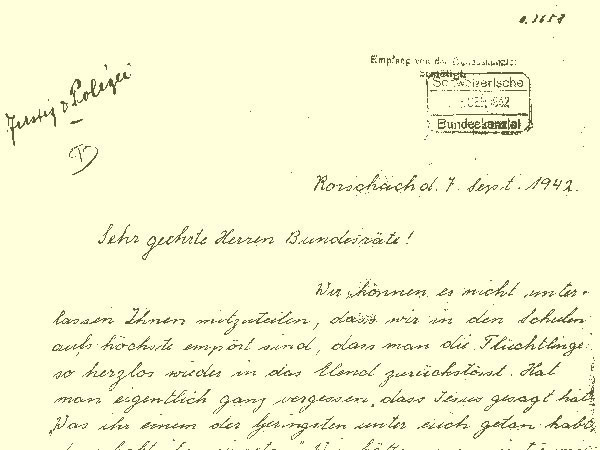 Justiz & Polizei
Empfang von der Bundeskanzlei
bestätigt
Schweizerische
Bundeskanzlei
Rorschach d. 7. Sept. 1942.
Sehr geehrte Herren Bundesräte!
Wir können es nicht unter-
lassen Ihnen mitzuteilen, dass wir in den Schulen
aufs höchste empört sind, dass man die Flüchtlinge
so herzlos wieder in das Elend zurückstösst. Hat
man eigentlich ganz vergessen, dass Jesus gesagt hat
"Was ihr einem der Geringsten unter euch getan habt,